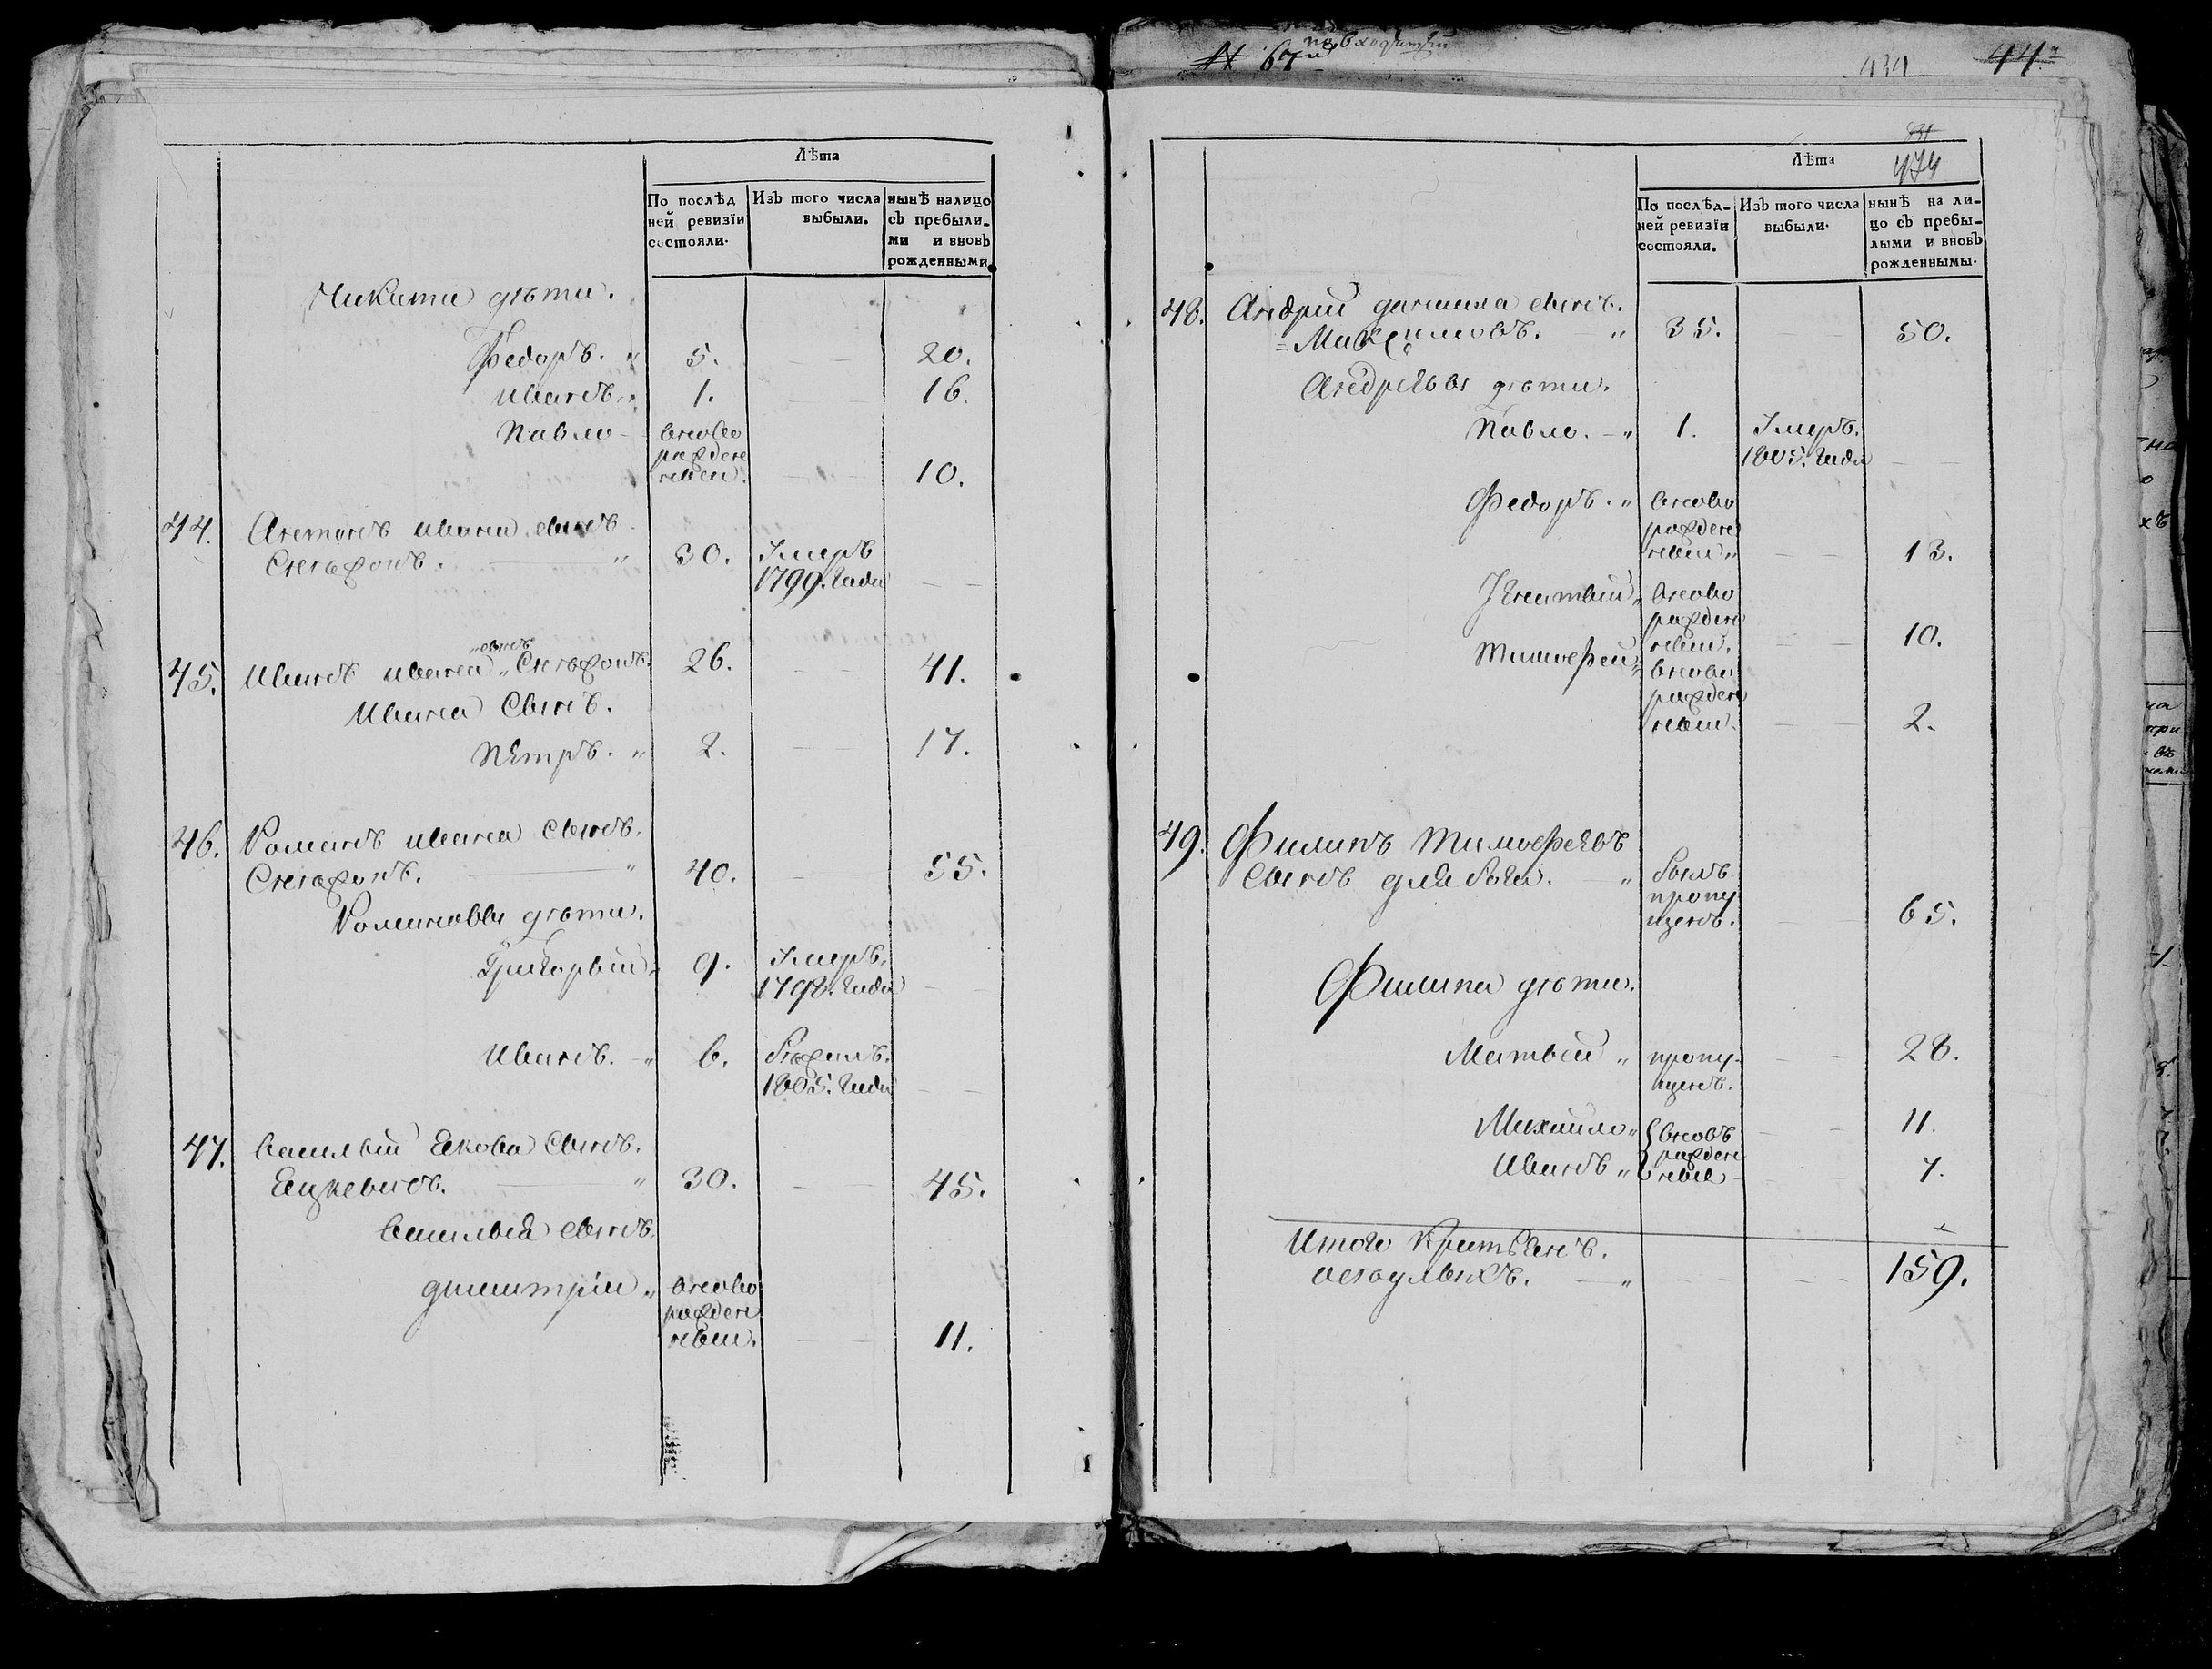 Лѣта
По послѣд
ней ревизїи
состояли.
Изъ того числа
выбыли.
нынѣ налицо
съ пребыли-
ми и вновь
рожденными
Никити дѣти.
Федоръ. „ 5. — — 20.
Иванъ. „ 1. — — 16.
Павло - вново
рожден
ный. — — 10.
44. Антонъ ивана сынъ
Снѣжокъ. — „ 30. Умеръ
1799. Года — —
сынъ
45. Иванъ ивана „ Снѣжокъ. 26. — — 41.
Ивана Сынъ.
Петръ. „ 2. — — 17.
46. Романъ ивана Сынъ.
Снѣжокъ. — „ 40. — — 55.
Романовы дѣти.
Григорый „ 9. Умеръ.
1798. Года — —
Иванъ. — „ 6. Бѣжалъ.
1805. Года — —
47. Василый Якова Сынъ.
Яцкевичъ. — „ 30. — — 45.
Василья сынъ.
дмитрій „ вново
рожден
ный. — — 11.
№ 67й
939
44
Лѣта
974
По послѣд-
ней ревизїи
состояли.
Изъ того числа
выбыли.
нынѣ на ли-
цо съ пребы-
лыми и вновь
рожденнымы.
48. Андрій данила сынъ.
Максимовъ. — „ 35. — 50.
Андреевы дѣти.
Павло. — „ 1. Умеръ.
1805. Года — —
Федоръ. „ вново
рожден
ный „ — — 13.
Игнатый „ вново
рожден
ный. — — 10.
Тимофей „ вново
рожден
ный. — — 2.
49. Филипъ Тимофеевъ
Сынъ — „ былъ
пропу
щенъ. — 65.
Филипа дѣти.
Матвей „ пропу-
щенъ. — — 28.
Михайло „ вновъ — — 11.
рожден
Иванъ „ ные — — 7.
Итого Крестьянъ.
— „ — — — — 159.